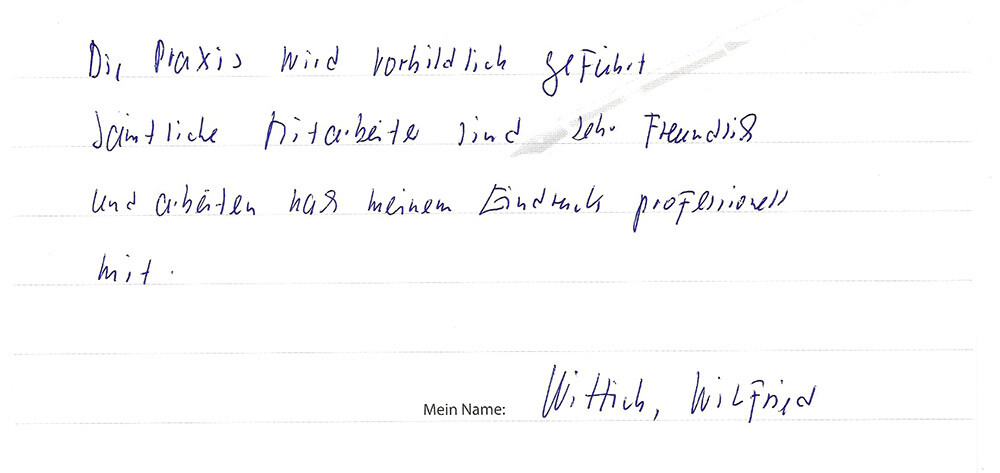 Die Praxis wird vorbildlich geführt
Sämtliche Mitarbeiter sind sehr freundlich
und arbeiten nach meinem Eindruck professionell
mit.
Mein Name: Wittich, Wilfried